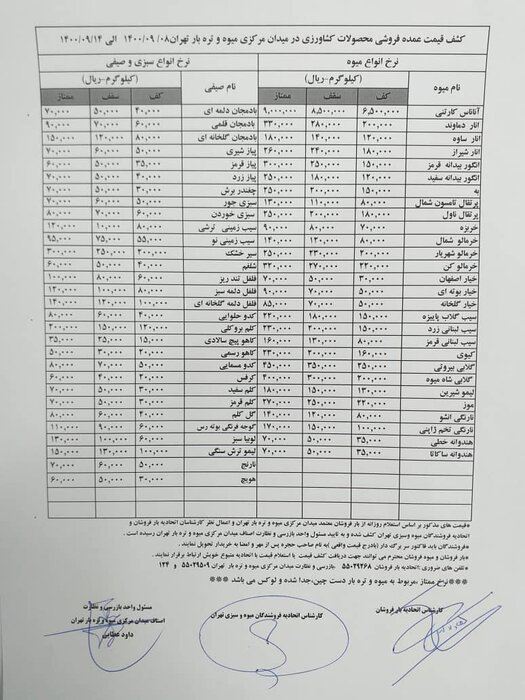 کشف قیمت عمده فروشی محصولات کشاورزی در میدان مرکزی میوه و تره بار تهران ۱۴۰۰/۰۹/۰۸ الی ۱۴۰۰/۰۹/۱۴
نرخ انواع میوه نرخ انواع سبزی و صیفی
نام میوه (کیلوگرم-ریال) نام صیفی (کیلوگرم-ریال)
کف سقف ممتاز کف سقف ممتاز
آناناس کارتنی ۶,۵۰۰,۰۰۰ ۸,۵۰۰,۰۰۰ ۹,۰۰۰,۰۰۰ بادمجان دلمه ای ۴۰,۰۰۰ ۵۰,۰۰۰ ۷۰,۰۰۰
انار دماوند ۲۰۰,۰۰۰ ۲۸۰,۰۰۰ ۳۳۰,۰۰۰ بادمجان قلمی ۶۰,۰۰۰ ۷۰,۰۰۰ ۹۰,۰۰۰
انار ساوه ۱۲۰,۰۰۰ ۱۴۰,۰۰۰ ۱۸۰,۰۰۰ بادمجان گلخانه ای ۸۰,۰۰۰ ۱۲۰,۰۰۰ ۱۵۰,۰۰۰
انار شیراز ۱۸۰,۰۰۰ ۲۴۰,۰۰۰ ۲۶۰,۰۰۰ پیاز شیری ۶۰,۰۰۰ ۷۰,۰۰۰
انگور بیدانه قرمز ۱۵۰,۰۰۰ ۲۵۰,۰۰۰ ۳۰۰,۰۰۰ پیاز قرمز ۳۵,۰۰۰ ۵۰,۰۰۰ ۶۰,۰۰۰
انگور بیدانه سفید ۱۲۰,۰۰۰ ۱۸۰,۰۰۰ ۲۵۰,۰۰۰ پیاز زرد ۴۰,۰۰۰ ۵۰,۰۰۰ ۷۰,۰۰۰
به ۱۵۰,۰۰۰ ۲۰۰,۰۰۰ ۲۵۰,۰۰۰ چغندر برش ۳۰,۰۰۰ ۵۰,۰۰۰
پرتقال تامسون شمال ۸۰,۰۰۰ ۱۱۰,۰۰۰ ۱۳۰,۰۰۰ سبزی جور ۵۰,۰۰۰ ۶۰,۰۰۰ ۷۰,۰۰۰
پرتقال ناول ۱۸۰,۰۰۰ ۲۰۰,۰۰۰ ۲۵۰,۰۰۰ سبزی خوردن ۶۰,۰۰۰ ۷۰,۰۰۰ ۸۰,۰۰۰
خربزه ۷۰,۰۰۰ ۸۰,۰۰۰ ۹۰,۰۰۰ سیب زمینی ترشی ۸۰,۰۰۰ ۱۲۰,۰۰۰
خرمالو شمال ۸۰,۰۰۰ ۱۲۰,۰۰۰ ۱۴۰,۰۰۰ سیب زمینی نو ۵۵,۰۰۰ ۷۵,۰۰۰ ۹۵,۰۰۰
خرمالو شهریار ۲۰۰,۰۰۰ ۲۳۰,۰۰۰ ۲۵۰,۰۰۰ سیر خشک ۲۰۰,۰۰۰ ۲۵۰,۰۰۰ ۳۰۰,۰۰۰
خرمالو کن ۲۲۰,۰۰۰ ۲۷۰,۰۰۰ ۳۲۰,۰۰۰ شلغم ۴۰,۰۰۰ ۵۰,۰۰۰ ۶۰,۰۰۰
خیار اصفهان ۳۰,۰۰۰ ۵۰,۰۰۰ ۷۰,۰۰۰ فلفل تند ریز ۶۰,۰۰۰ ۸۰,۰۰۰ ۱۰۰,۰۰۰
خیار بوته ای ۵۰,۰۰۰ ۷۰,۰۰۰ ۹۰,۰۰۰ فلفل دلمه سبز ۸۰,۰۰۰ ۱۰۰,۰۰۰ ۱۴۰,۰۰۰
خیار گلخانه ۵۰,۰۰۰ ۷۰,۰۰۰ ۸۵,۰۰۰ فلفل دلمه گلخانه ای ۱۰۰,۰۰۰ ۱۲۰,۰۰۰ ۱۴۰,۰۰۰
سیب گلاب پاییزه ۱۵۰,۰۰۰ ۱۸۰,۰۰۰ ۲۲۰,۰۰۰ کدو حلوایی ۴۰,۰۰۰ ۶۰,۰۰۰ ۸۰,۰۰۰
سیب لبنانی زرد ۱۵۰,۰۰۰ ۲۰۰,۰۰۰ ۲۳۰,۰۰۰ کلم بروکلی ۱۲۰,۰۰۰ ۱۵۰,۰۰۰ ۲۰۰,۰۰۰
سیب لبنانی قرمز ۸۰,۰۰۰ ۱۳۰,۰۰۰ ۱۶۰,۰۰۰ کاهو پیچ سالادی ۱۵,۰۰۰ ۲۵,۰۰۰ ۳۵,۰۰۰
کیوی ۱۶۰,۰۰۰ ۲۰۰,۰۰۰ ۲۳۰,۰۰۰ کاهو رسمی ۲۰,۰۰۰ ۳۰,۰۰۰ ۵۰,۰۰۰
گلابی بیروتی ۲۵۰,۰۰۰ ۳۵۰,۰۰۰ ۴۵۰,۰۰۰ کدو مسمایی ۵۰,۰۰۰ ۷۰,۰۰۰ ۸۰,۰۰۰
گلابی شاه میوه ۲۰۰,۰۰۰ ۳۰۰,۰۰۰ ۴۰۰,۰۰۰ کرفس ۲۰,۰۰۰ ۴۰,۰۰۰ ۶۰,۰۰۰
لیمو شیرین ۱۳۰,۰۰۰ ۱۵۰,۰۰۰ ۱۸۰,۰۰۰ کلم سفید ۳۰,۰۰۰ ۵۰,۰۰۰ ۷۰,۰۰۰
موز ۲۲۰,۰۰۰ ۲۵۰,۰۰۰ ۲۷۰,۰۰۰ کلم قرمز ۵۰,۰۰۰ ۷۰,۰۰۰
نارنگی انشو ۸۰,۰۰۰ ۱۲۰,۰۰۰ ۱۴۰,۰۰۰ گل کلم ۴۰,۰۰۰ ۶۰,۰۰۰ ۸۰,۰۰۰
نارنگی تخم ژاپنی ۱۰۰,۰۰۰ ۱۵۰,۰۰۰ ۱۷۰,۰۰۰ گوجه فرنگی بوته رس ۶۰,۰۰۰ ۹۰,۰۰۰ ۱۱۰,۰۰۰
هندوانه خطی ۳۵,۰۰۰ ۵۰,۰۰۰ ۷۰,۰۰۰ لوبیا سبز ۶۰,۰۰۰ ۱۰۰,۰۰۰ ۱۳۰,۰۰۰
هندوانه ساکاتا ۳۵,۰۰۰ ۵۰,۰۰۰ ۷۰,۰۰۰ لیمو ترش سنگی ۱۰۰,۰۰۰ ۱۳۰,۰۰۰ ۱۵۰,۰۰۰
نارنج ۵۰,۰۰۰ ۶۰,۰۰۰ ۷۰,۰۰۰
هویج ۳۰,۰۰۰ ۵۰,۰۰۰ ۶۰,۰۰۰
*قیمت های مذکور بر اساس استعلام روزانه از بار فروشان معتمد میدان مرکزی میوه و تره بار تهران و اعمال نظر کارشناسان اتحادیه بار فروشان و
اتحادیه فروشندگان میوه وسبزی تهران کشف شده و به تایید مسئول واحد بازرسی و نظارت اصناف میدان مرکزی میوه و تره بار تهران رسیده است .
*فروشندگان باید فاکتور سر برگه دار (بادرج قیمت واقعی )به نام صاحب حجره پس از مهر و امضا به خریدار تحویل نمایند.
*بار فروشان و میوه فروشان محترم می توانند جهت دریافت کشف قیمت با استعلام قیمت با اتحادیه متبوع خویش ارتباط برقرار نمایند .
*تلفن های ضروری :اتحادیه بار فروشان ۵۵۰۲۹۲۶۸ بازرسی و نظارت میدان مرکزی میوه و تره بار تهران ۵۵۰۲۹۵۰۹ و ۱۲۴
***نرخ ممتاز ،مربوط به میوه و تره بار دست چین،جدا شده و لوکس می باشد ***
کارشناس اتحادیه بار فروشان کارشناس اتحادیه فروشندگان میوه و سبزی تهران مسئول واحد بازرسی و نظارت
اصناف میدان مرکزی میوه و تره بار تهران
داود عطایی